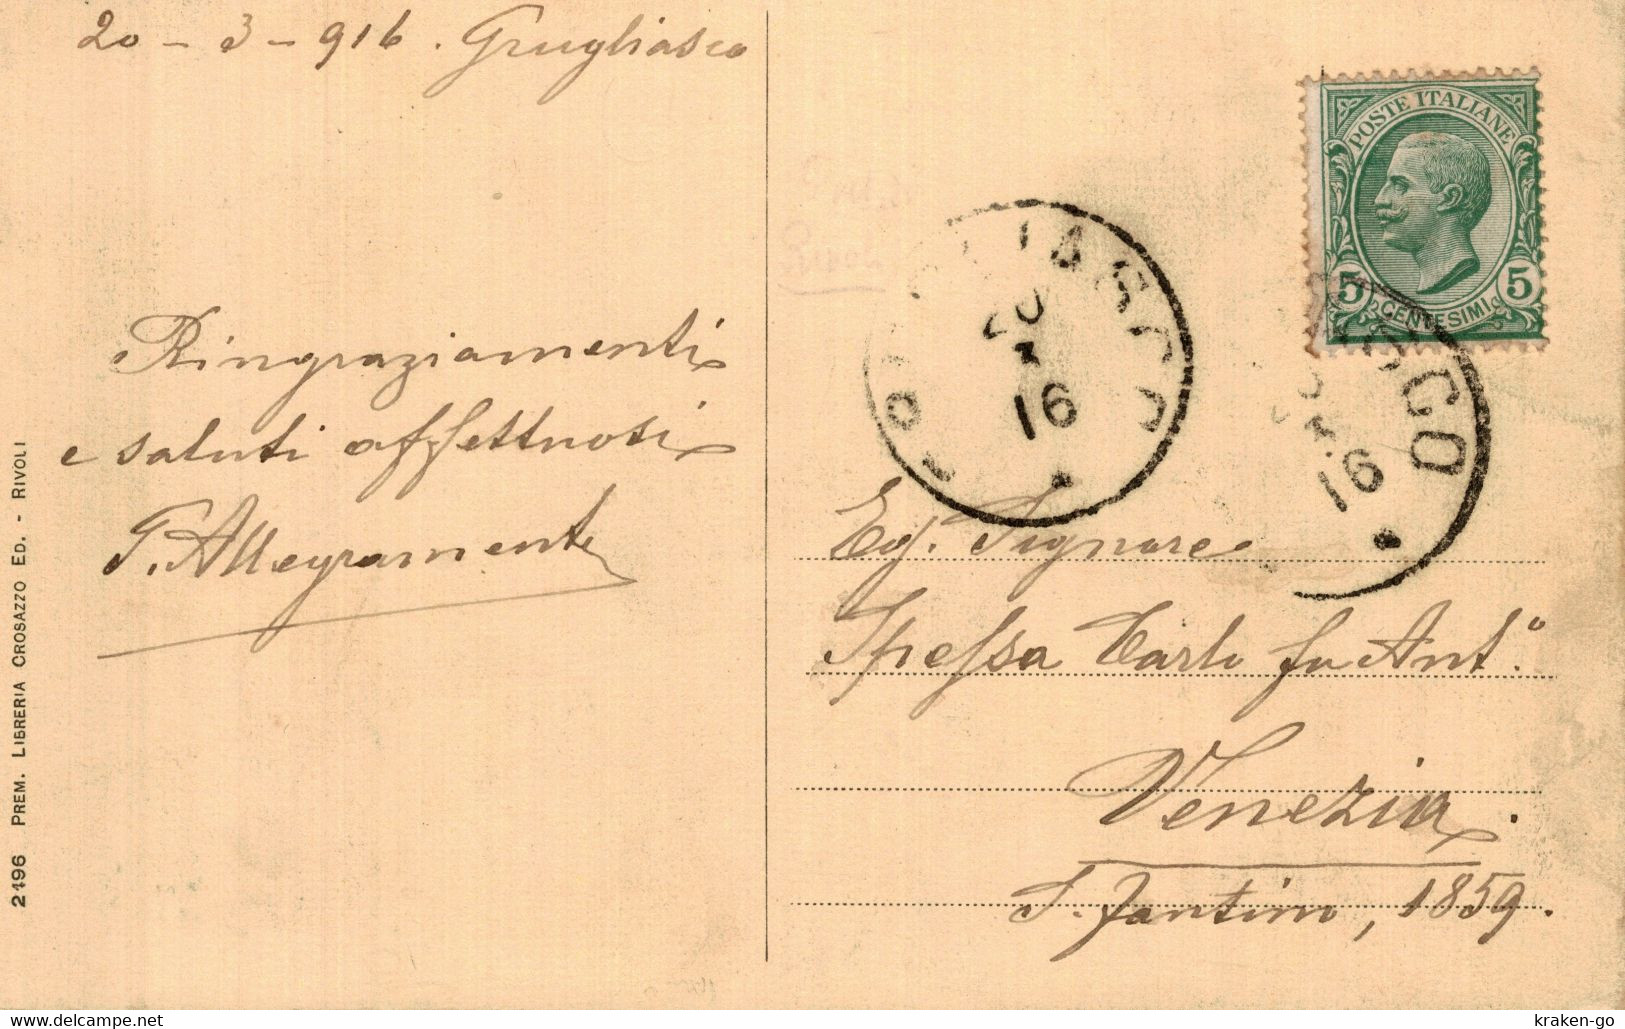 20 - 3 - 916 . Grugliasco
Ringraziamenti
e saluti affettuosi
G. Allegramente
2496 PREM. LIBRERIA CROSAZZO ED. - RIVOLI
POSTE ITALIANE
5 CENTESIMI 5
20
3
16
16
Eg. Signore
Spessa Carlo fu Ant.°
Venezia.
S. Fantino, 1859.
kraken-go